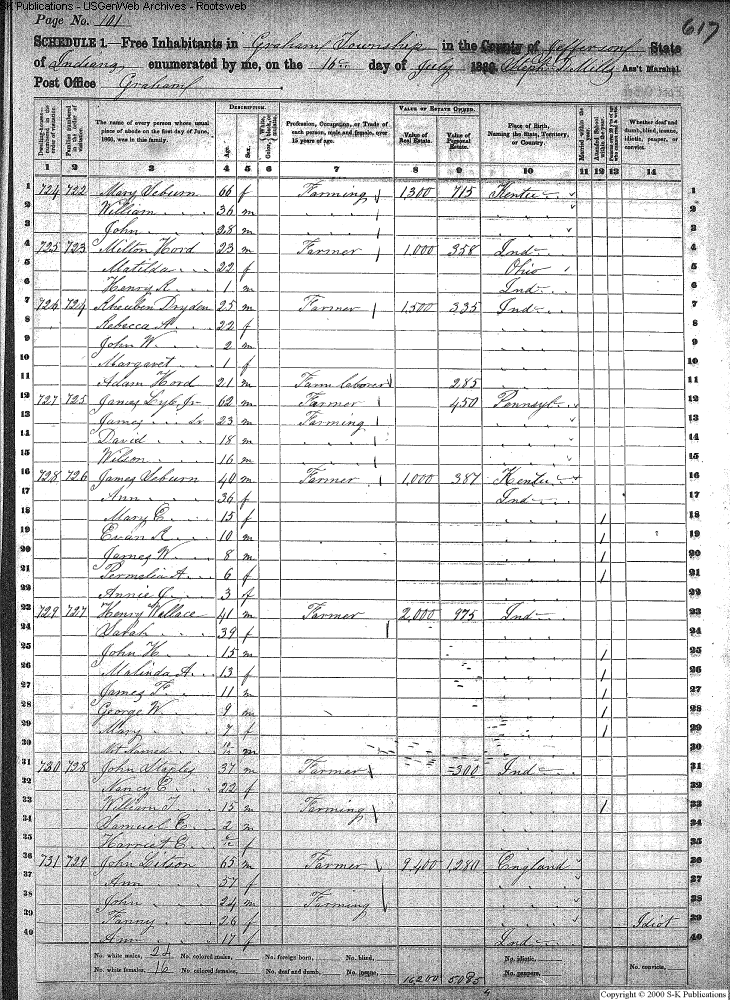 S-K Publications - USGenWeb Archives - Rootsweb
Page No. 101
617
SCHEDULE 1. Free Inhabitants in Graham Township in the County of Jefferson State
of Indiana enumerated by me, on the 16 day of July 1860. Ass't Marshal.
Post Office Graham
DESCRIPTION. VALUE OF ESTATE OWNED.
Dwelling-houses numbered in the order of visitation. Families numbered in the order of visitation. The name of every person whose usual place of abode on the first day of June, 1860, was in this family. Age. Sex. White, black, or mulatto. Profession, Occupation, or Trade of each person, male and female, over 15 years of age. Value of Real Estate. Value of Personal Estate. Place of Birth, Naming the State, Territory, or Country. Married within the year. Attended School within the year. Whether deaf and dumb, blind, insane, idiotic, pauper, or convict.
1 2 3 4 5 6 7 8 9 10 11 12 13 14
1 724 722 Mary Seburn 66 f Farming 1,300 715 Kentu 1
2 William 36 m 2
3 John 28 m 3
4 725 723 Milton Hord 23 m Farmer 1,000 358 Ind 4
5 Matilda 22 f Ohio 5
6 Henry R. 1 m Ind 6
7 726 724 Rheuben Dryden 25 m Farmer 1,500 335 Ind 7
8 Rebecca A. 22 f 8
9 John W. 2 m 9
10 Margaret 1 f 10
11 Adam Hord 21 m Farm laborer 285 11
12 727 725 James Lyle Jr 62 m Farmer 450 Pennsyl 12
13 James Sr 23 m Farming 13
14 David 18 m 14
15 Wilson 16 m 15
16 728 726 James Seburn 40 m Farmer 1,000 387 Kentu 16
17 Ann 36 f Ind 17
18 Mary E. 15 f / 18
19 Evan R. 10 m / 19
20 James W. 8 m / 20
21 Permelia A. 6 f / 21
22 Annie J. 3 f 22
23 729 727 Henry Wallace 41 m Farmer 2,000 975 Ind 23
24 Sarah 39 f 24
25 John H. 15 m / 25
26 Malinda A. 13 f / 26
27 James F. 11 m / 27
28 George W. 9 m / 28
29 Mary 7 f / 29
30 Not Named m 30
31 730 728 John Staples 37 m Farmer 300 Ind 31
32 Nancy E. 22 f 32
33 William T. 15 m Farming / 33
34 Samuel E. 2 m 34
35 Harriet E. f 35
36 731 729 John Letson 65 m Farmer 9,400 1,280 England 36
37 Ann 57 f 37
38 John 24 m Farming 38
39 Fanny 26 f Idiot 39
40 Ann 17 f Ind 40
No. white males, 24 No. colored males, No. foreign born, No. blind, No. idiotic,
No. white females, 16 No. colored females, No. deaf and dumb, No. insane, 16200 5085 No. paupers, No. convicts,
Copyright © 2000 S-K Publications